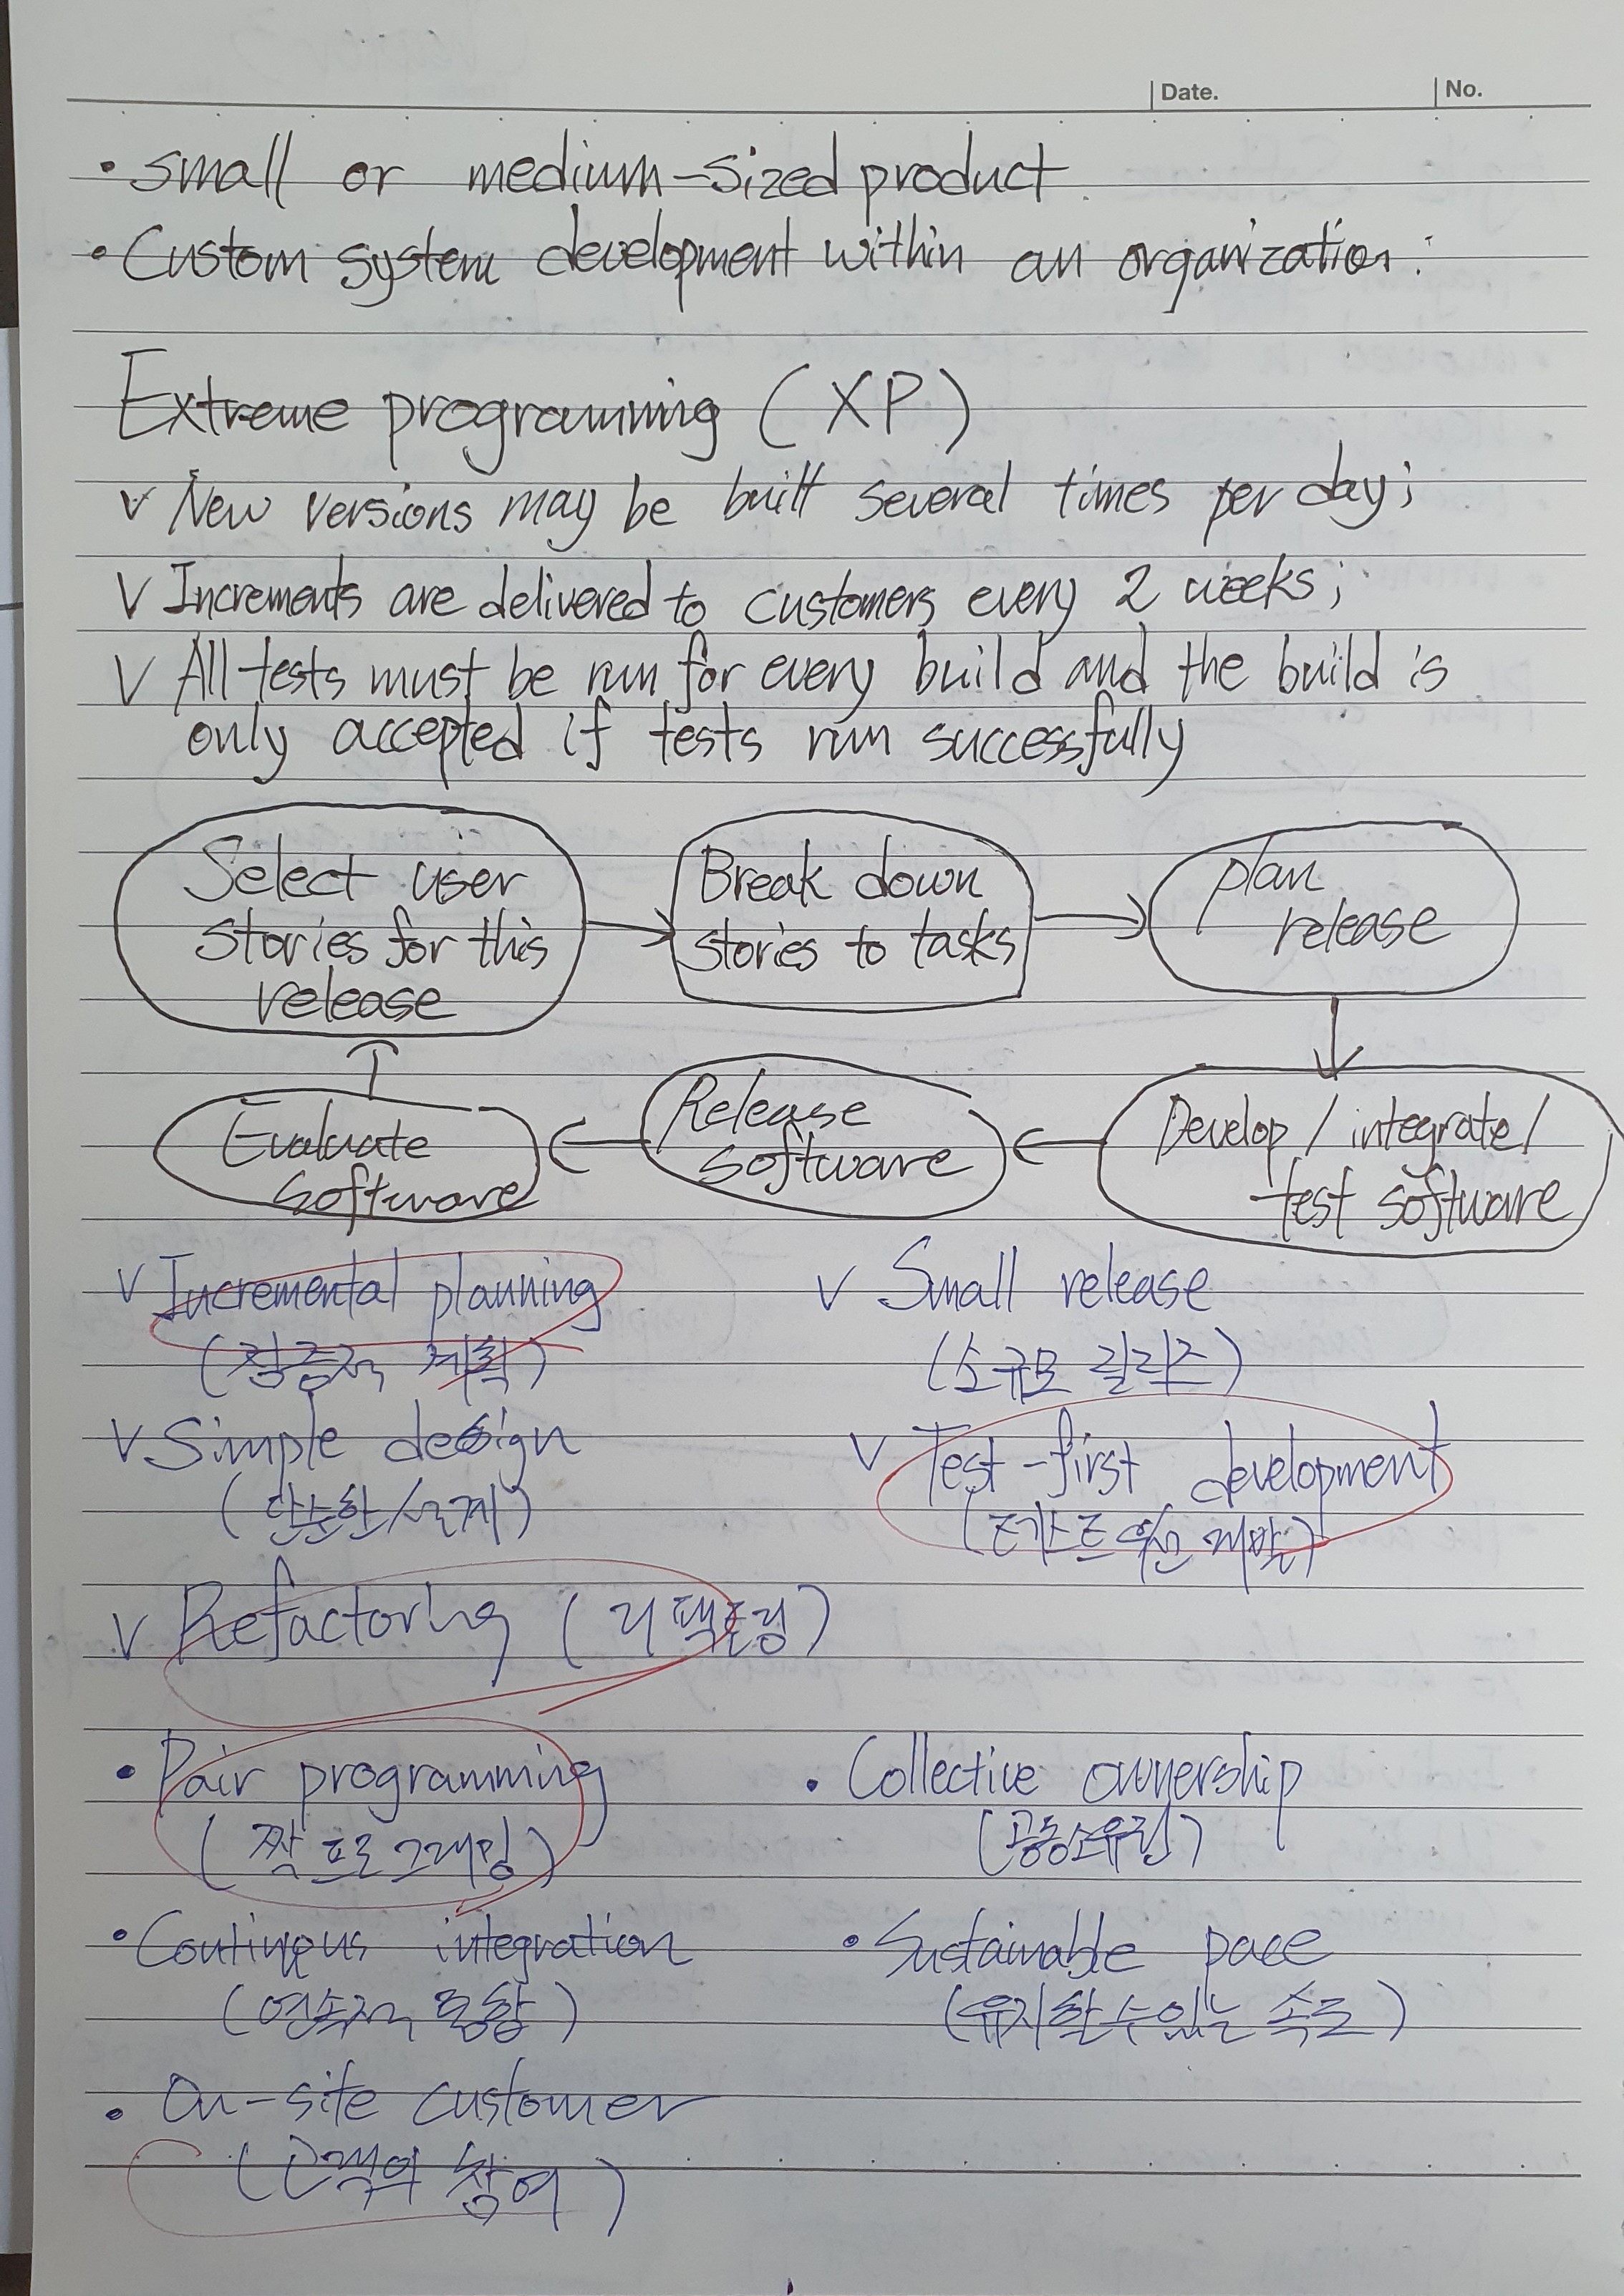 Date. No.
• small or medium-sized product.
• Custom system development within an organization.
Extreme programming (XP)
v New versions may be built several times per day;
v Increments are delivered to customers every 2 weeks;
v All tests must be run for every build and the build is
only accepted if tests run successfully
Select user
stories for this
release
Break down
stories to tasks
plan
release
Develop / integrate /
test software
Release
software
Evaluate
software
v Incremental planning
(점증적 계획)
v Small release
(소규모 릴리즈)
v Simple design
(단순한 설계)
v Test-first development
(테스트 우선 개발)
v Refactoring (리팩토링)
• Pair programming
(짝 프로그래밍)
• Collective ownership
(공동소유권)
• Continuous integration
(연속적 통합)
• Sustainable pace
(유지할 수 있는 속도)
• On-site customer
(고객의 참여)